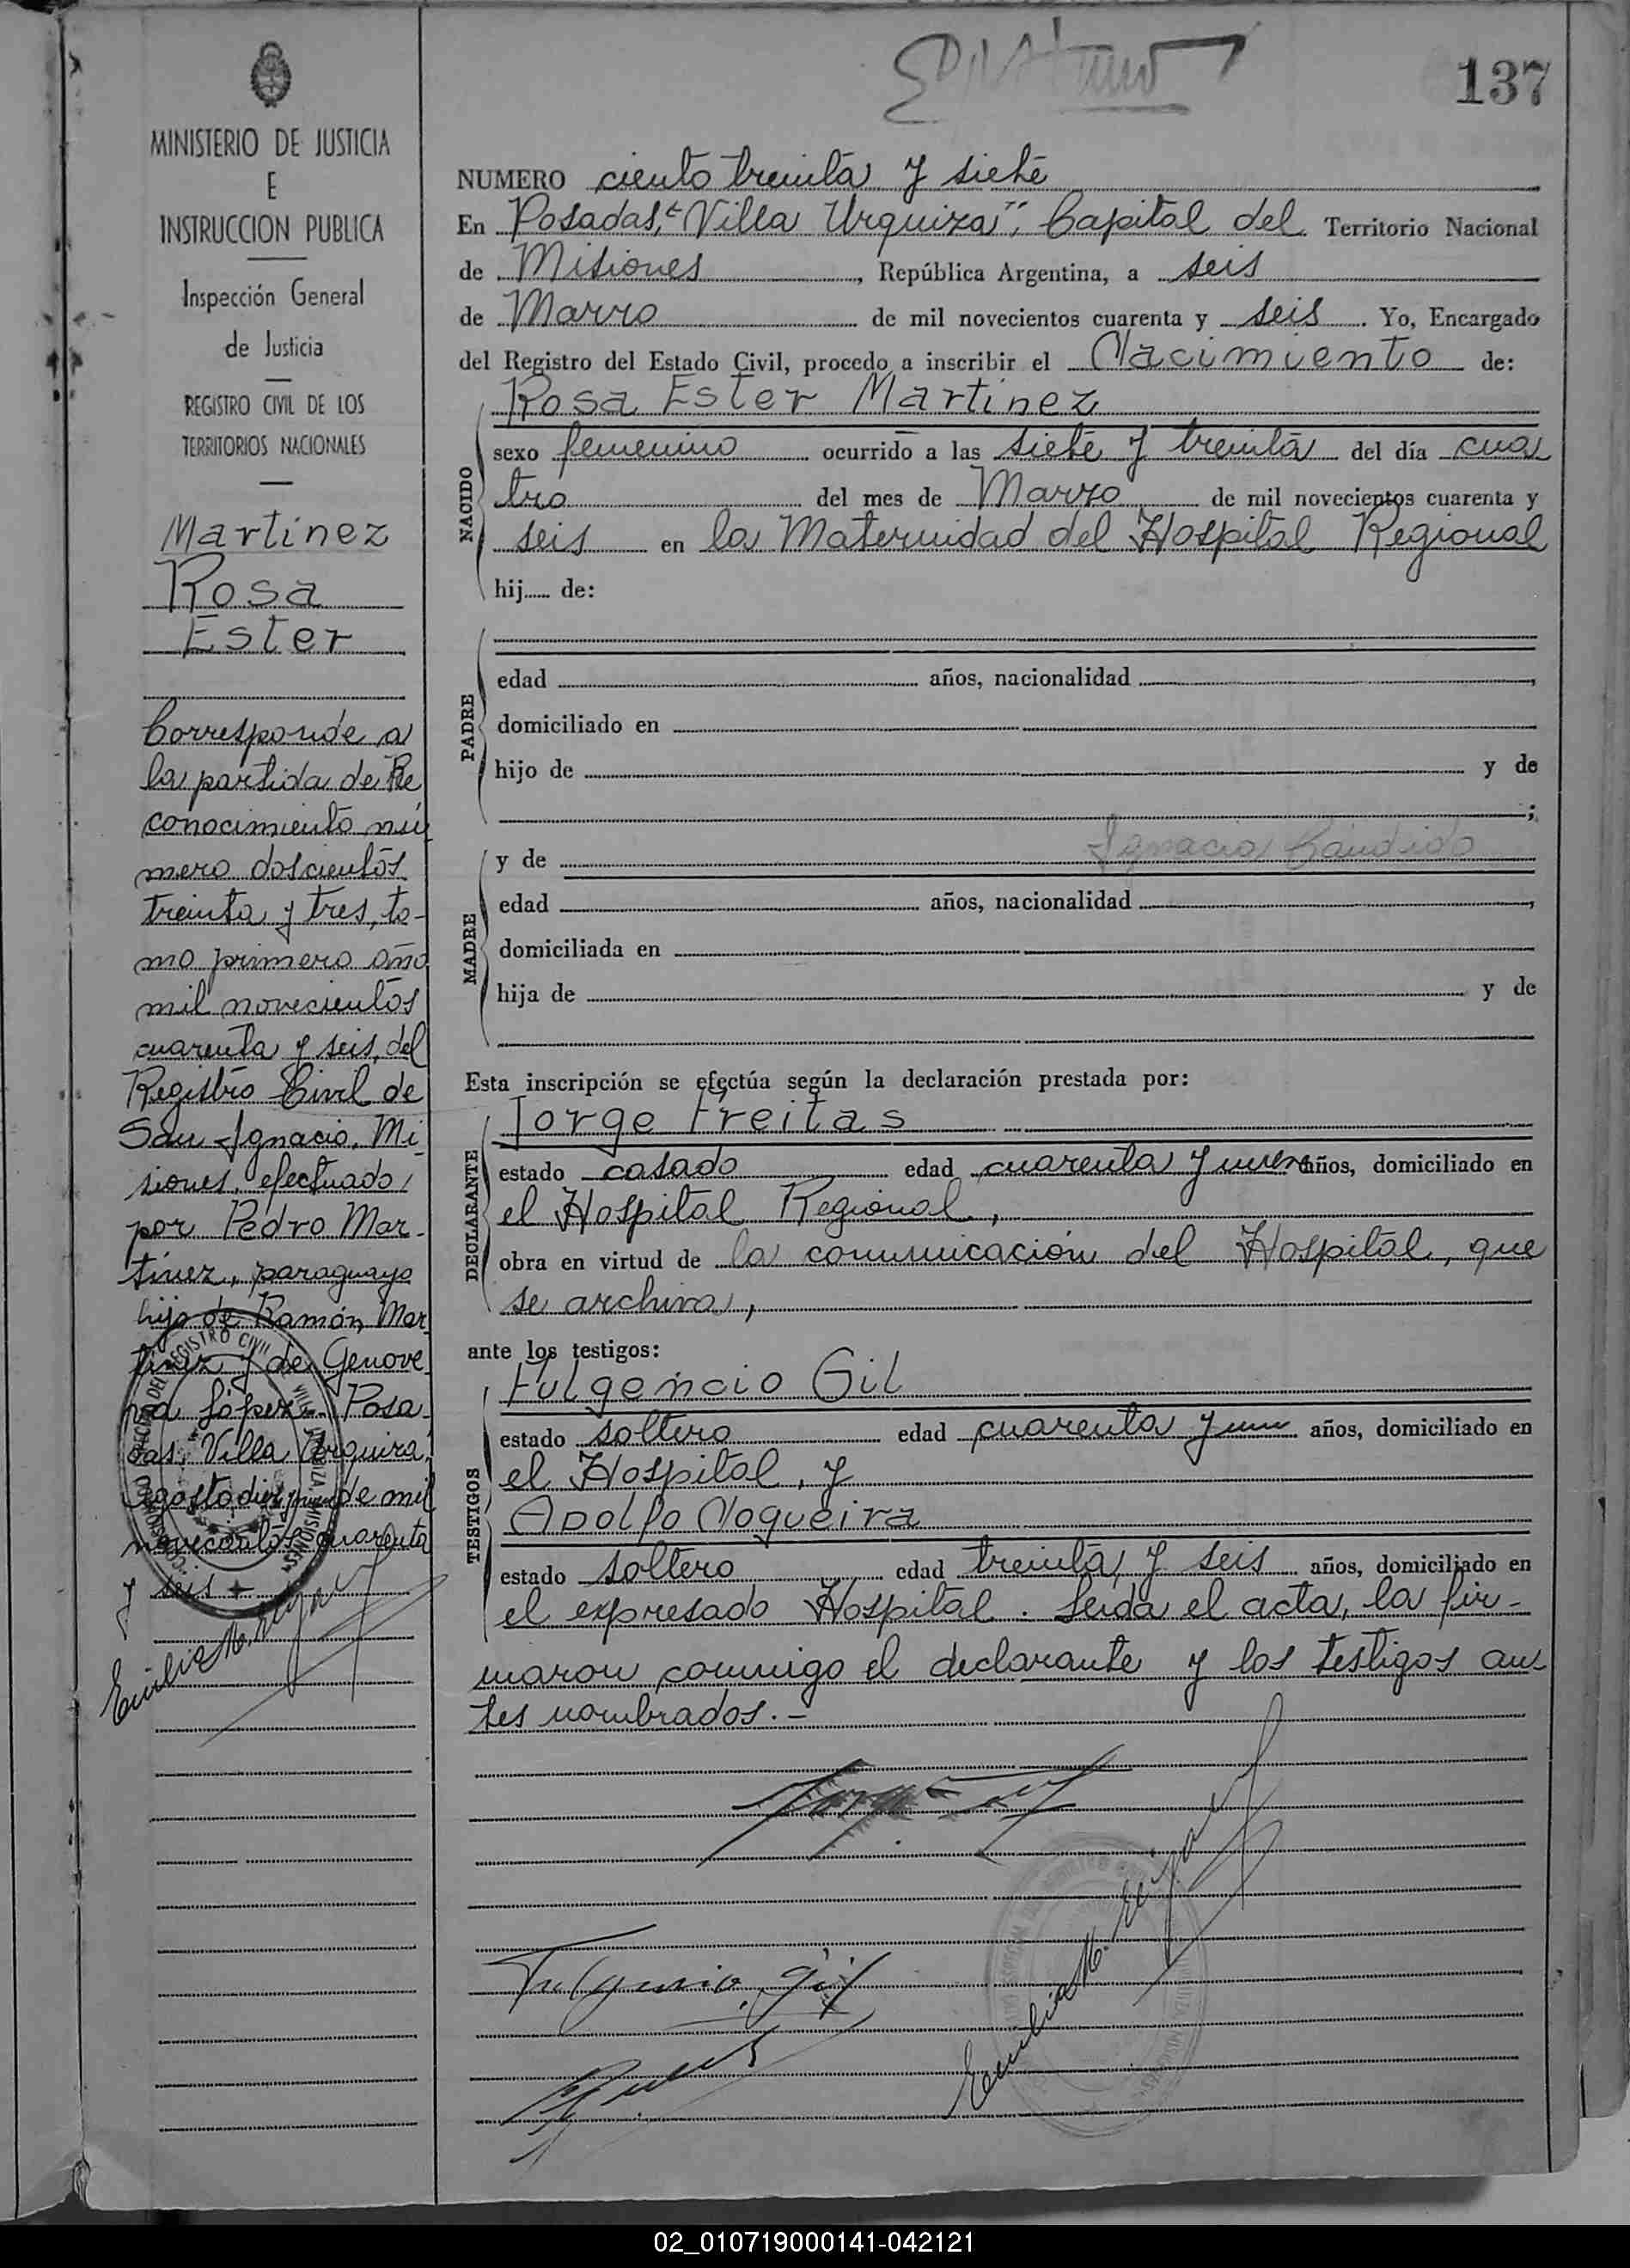 137
MINISTERIO DE JUSTICIA
E
INSTRUCCION PUBLICA
Inspección General
de Justicia
REGISTRO CIVIL DE LOS
TERRITORIOS NACIONALES
Martínez
Rosa
Ester
Corresponde a
la partida de Re
conocimiento nú
mero doscientos
treinta y tres, to-
mo primero año
mil novecientos
cuarenta y seis, del
Registro Civil de
San Ignacio, Mi
siones, efectuado
por Pedro Mar-
tínez, paraguayo
hijo de Ramón Mar
tínez y de Genove
va López. Posa
das, Villa Urquiza,
agosto de mil
novecientos cuarenta
y seis
NUMERO ciento treinta y siete
En Posadas, "Villa Urquiza", Capital del Territorio Nacional
de Misiones, República Argentina, a seis
de Marzo de mil novecientos cuarenta y seis. Yo, Encargado
del Registro del Estado Civil, procedo a inscribir el Nacimiento de:
Rosa Ester Martínez
NACIDO
sexo femenino ocurrido a las siete y treinta del día cua
tro del mes de Marzo de mil novecientos cuarenta y
seis en la Maternidad del Hospital Regional
hij...... de:
PADRE
edad años, nacionalidad
domiciliado en
hijo de y de
;
MADRE
y de Ignacia Cándido
edad años, nacionalidad
domiciliada en
hija de y de
Esta inscripción se efectúa según la declaración prestada por:
DECLARANTE
Jorge Freitas
estado casado edad cuarenta y nueve años, domiciliado en
el Hospital Regional,
obra en virtud de la comunicación del Hospital, que
se archiva,
ante los testigos:
TESTIGOS
Fulgencio Gil
estado soltero edad cuarenta y un años, domiciliado en
el Hospital, y
Adolfo Nogueira
estado soltero edad treinta y seis años, domiciliado en
el expresado Hospital. Leída el acta, la fir-
maron conmigo el declarante y los testigos an-
tes nombrados.-
Fulgencio Gil
02_010719000141-042121